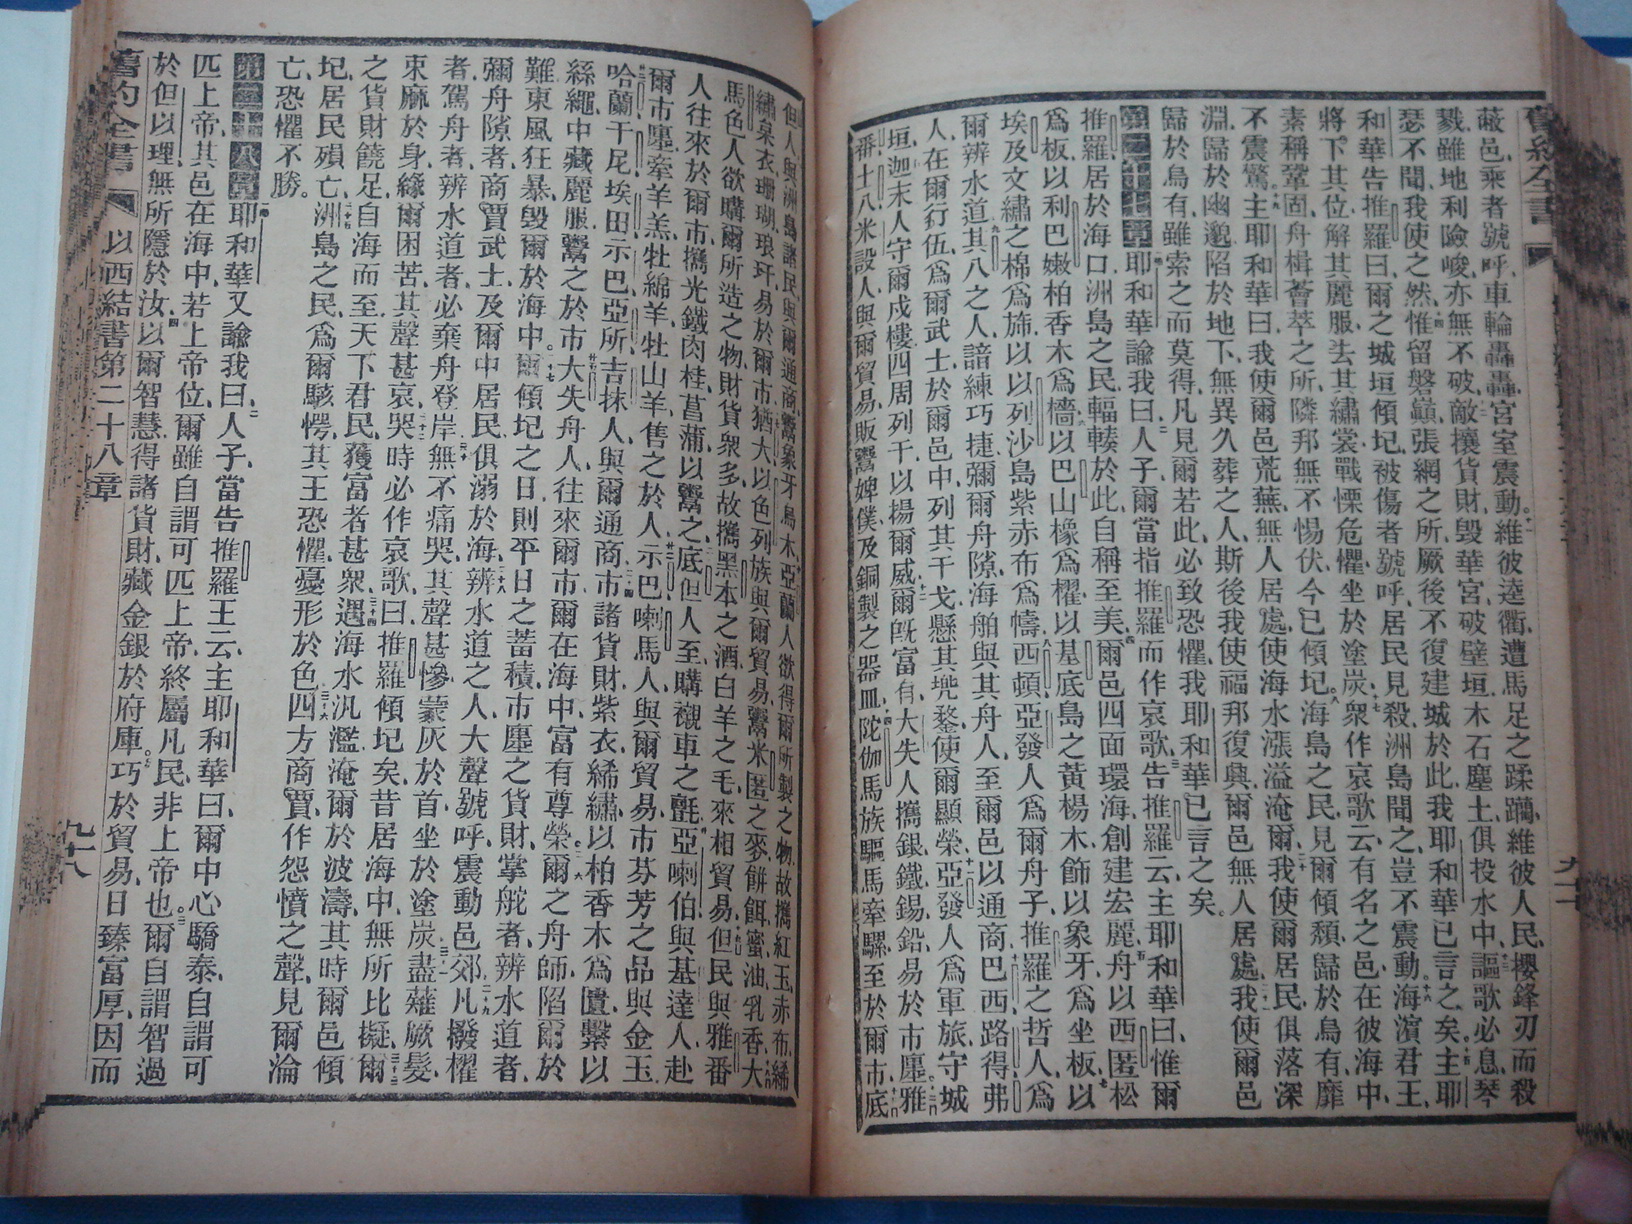 蔽邑乘者號呼車輪轟轟宮室震動維彼逵衢遭馬足之蹂躪維彼人民攖鋒刃而殺
戮雖地利險峻亦無不破敵攘貨財毀華宮破壁垣木石塵土俱投水中謳歌必息琴
瑟不聞我使之然惟留磐巔張網之所厥後不復建城於此我耶和華已言之矣主耶
和華告推羅曰爾之城垣傾圮被傷者號呼居民見殺洲島聞之豈不震動海濱君王
將下其位解其麗服去其繡裳戰慄危懼坐於塗炭衆作哀歌云有名之邑在彼海中
素稱鞏固舟楫薈萃之所隣邦無不惕伏今已傾圮海島之民見爾傾頹歸於烏有靡
不震驚主耶和華曰我使爾邑荒蕪無人居處使海水漲溢淹爾我使爾居民俱落深
淵歸於幽邈陷於地下無異久葬之人斯後我使福邦復興爾邑無人居處我使爾邑
歸於烏有雖索之而莫得凡見爾若此必致恐懼我耶和華已言之矣
第二十七章耶和華諭我曰人子爾當指推羅而作哀歌告推羅云主耶和華曰惟爾
推羅居於海口洲島之民輻輳於此自稱至美爾邑四面環海創建宏麗舟以西匿松
爲板以利巴嫩柏香木爲檣以巴山橡爲櫂以基底島之黃楊木飾以象牙爲坐板以
埃及文繡之棉爲旆以以列沙島紫赤布爲幬西頓亞發人爲爾舟子推羅之哲人爲
爾辨水道其八之人諳練巧捷彌爾舟隙海舶與其舟人至爾邑以通商巴西路得弗
人在爾行伍爲爾武士於爾邑中列其干戈懸其兜鍪使爾顯榮亞發人爲軍旅守城
垣迦末人守爾戍樓四周列干以揚爾威爾旣富有大失人攜銀鐵錫鉛易於市廛雅
番土八米設人與爾貿易販鬻婢僕及銅製之器皿陀伽馬族驅馬牽騾至於爾市底
但人與洲島諸民與爾通商鬻象牙烏木亞蘭人欲得爾所製之物故攜紅玉赤布絺
繡枲衣珊瑚琅玕易於爾市猶大以色列族與爾貿易鬻米匿之麥餅餌蜜油乳香大
馬色人欲購爾所造之物財貨衆多故攜黑本之酒白羊之毛來相貿易但民與雅番
人往來於爾市攜光鐵肉桂菖蒲以鬻之底但人至購襯車之氈亞喇伯與基達人赴
爾市廛牽羊羔牡綿羊牡山羊售之於人示巴喇馬人與爾貿易市芬芳之品與金玉
哈蘭干尼埃田示巴亞所吉抹人與爾通商市諸貨財紫衣絺繡以柏香木爲匱繫以
絲繩中藏麗服鬻之於市大失舟人往來爾市爾在海中富有尊榮爾之舟師陷爾於
難東風狂暴毀爾於海中爾傾圮之日則平日之蓄積市廛之貨財掌舵者辨水道者
彌舟隙者商賈武士及爾中居民俱溺於海辨水道之人大聲號呼震動邑郊凡撥櫂
者駕舟者辨水道者必棄舟登岸無不痛哭其聲甚慘蒙灰於首坐於塗炭盡薙厥髮
束麻於身緣爾困苦其聲甚哀哭時必作哀歌曰推羅傾圮矣昔居海中無所比擬爾
之貨財饒足自海而至天下君民獲富者甚衆遇海水汎濫淹爾於波濤其時爾邑傾
圮居民殞亡洲島之民爲爾駭愕其王恐懼憂形於色四方商賈作怨憤之聲見爾淪
亡恐懼不勝
第二十八章耶和華又諭我曰人子當告推羅王云主耶和華曰爾中心驕泰自謂可
匹上帝其邑在海中若上帝位爾雖自謂可匹上帝終屬凡民非上帝也爾自謂智過
於但以理無所隱於汝以爾智慧得諸貨財藏金銀於府庫巧於貿易日臻富厚因而
舊約全書 以西結書第二十八章 九十八